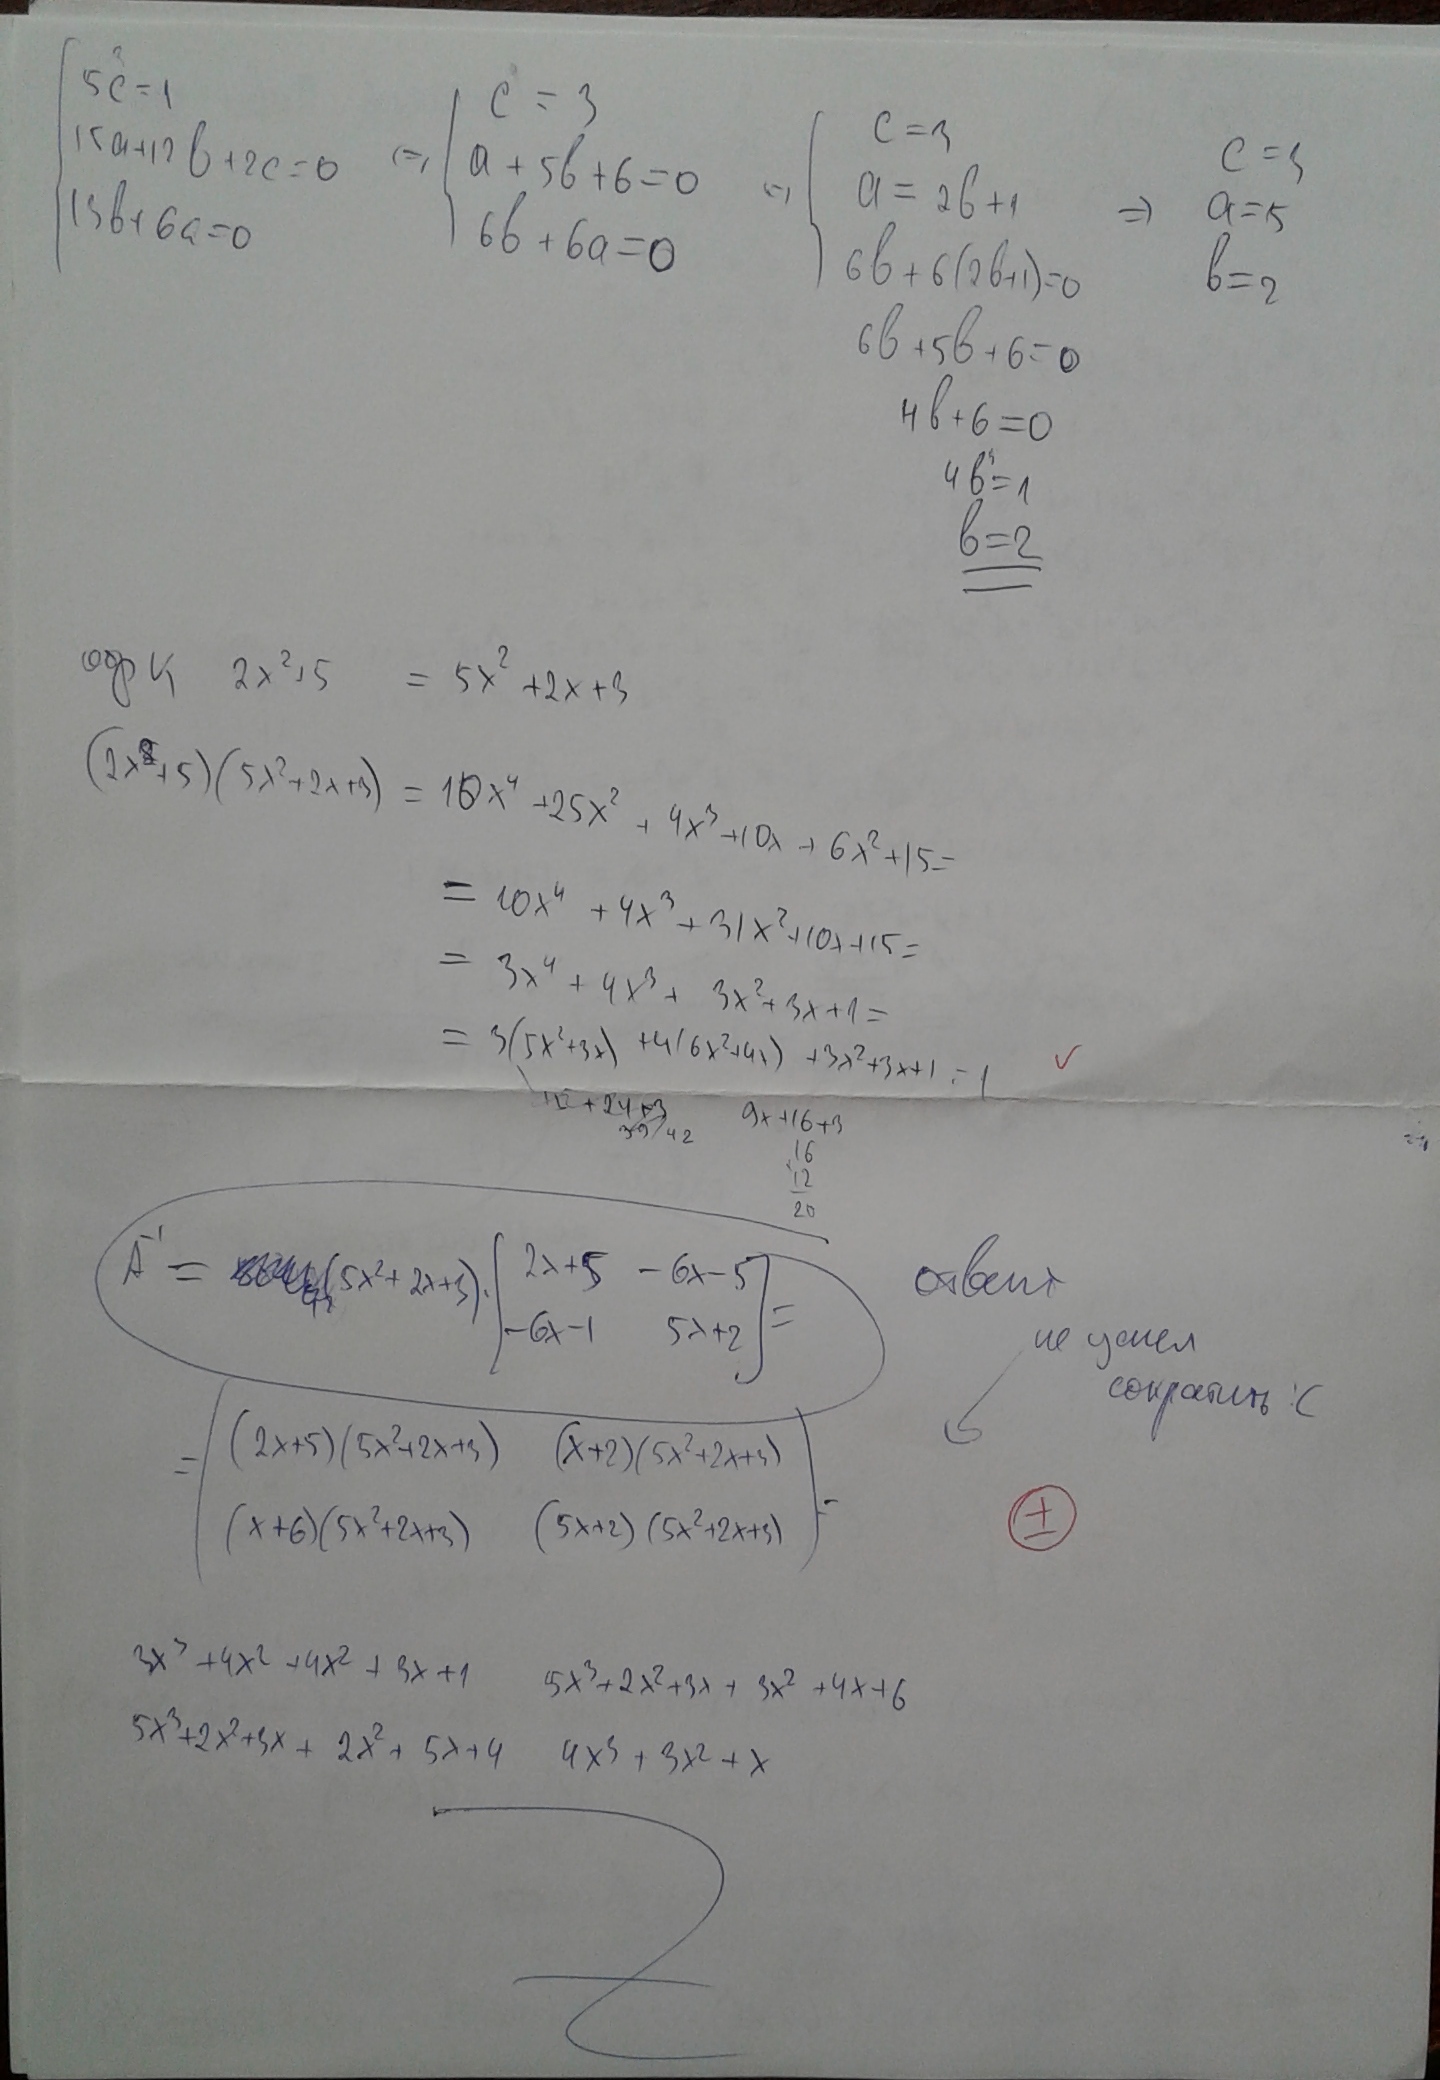 5c=1
15a+12b+2c=0
13b+6a=0
c=3
a+5b+6=0
6b+6a=0
c=3
a=2b+1
6b+6(2b+1)=0
6b+5b+6=0
4b+6=0
4b=1
b=2
⇒ c=3
a=5
b=2
2x²+5 = 5x²+2x+3
(2x²+5)(5x²+2x+3) = 10x⁴+25x²+4x³+10x+6x²+15=
= 10x⁴+4x³+31x²+10x+15=
= 3x⁴+4x³+3x²+3x+1=
= 3(5x²+3x)+4(6x²+4x)+3x²+3x+1=1 ✓
+24+3
42
9x+16+3
16
12
20
A⁻¹ = (5x²+2x+3)·[2x+5 -6x-5
-6x-1 5x+2]=
ответ
не успел
сократить :(
= (2x+5)(5x²+2x+3) (x+2)(5x²+2x+3)
(x+6)(5x²+2x+3) (5x+2)(5x²+2x+3) =
±
3x³+4x²+4x²+3x+1 5x³+2x²+3x+3x²+4x+6
5x³+2x²+3x+2x²+5x+4 4x³+3x²+x